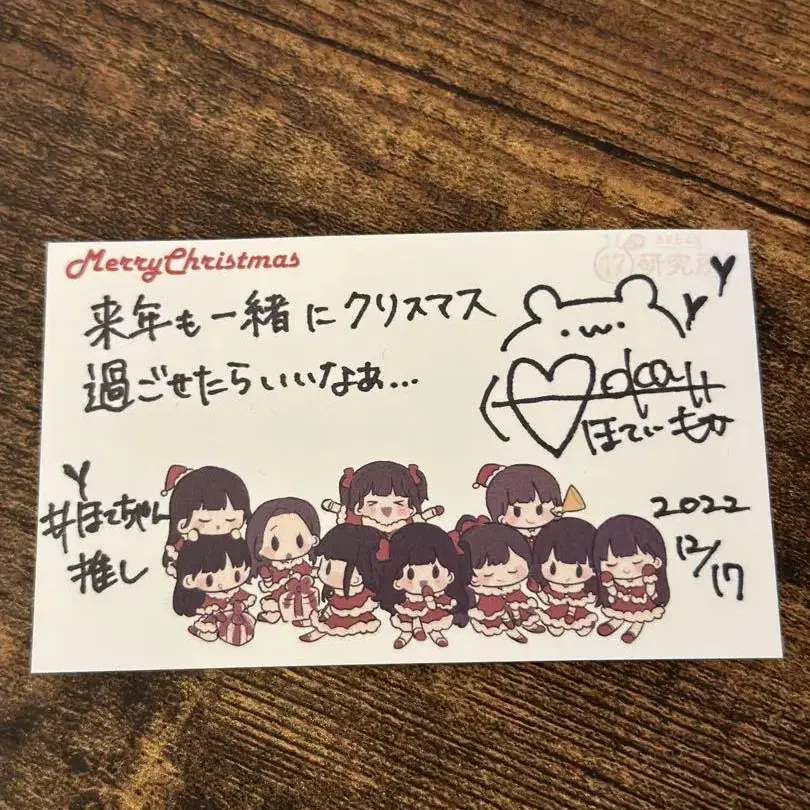 MerryChristmas
17研究所
来年も一緒にクリスマス
過ごせたらいいなぁ...
ほてぃもか
#ほてちゃん
推し
2022
12/17